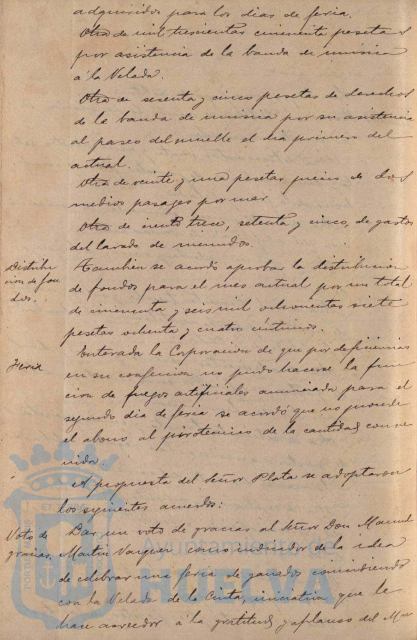 adquiridos para los dias de feria.
Otra de mil trescientas cincuenta pesetas
por asistencia de la banda de música
á la Velada.
Otra de sesenta y cinco pesetas de derechos
de la banda de musica por su asistencia
al paseo del muelle el dia primero del
actual.
Otra de veinte y una pesetas precio de dos
medios pasages por mar
Otra de ciento trece, setenta y cinco, de gastos
del lavado de menudos.
Distribu-
cion de fon-
dos.
Tambien se acordó aprobar la distribucion
de fondos para el mes actual por un total
de cincuenta y seis mil ochocientas siete
pesetas ochenta y cuatro céntimos.
Feria
Enterada la Corporacion de que por deficiencias
en su confeccion no pudo hacerse la fun-
cion de fuegos artificiales anunciada para el
segundo dia de feria se acordó que no procede
el abono al pirotécnico de la cantidad conve-
nida.
A propuesta del Señor Plata se adoptaron
los siguientes acuerdos:
Voto de
gracias.
Dar un voto de gracias al Señor Don Manuel
Martin Vazquez como iniciador de la idea
de celebrar una feria de ganados coincidiendo
con la Velada de la Cinta, iniciativa que le
hace acreedor á la gratitud y aplauso del Mu-
Ayuntamiento de
HUELVA